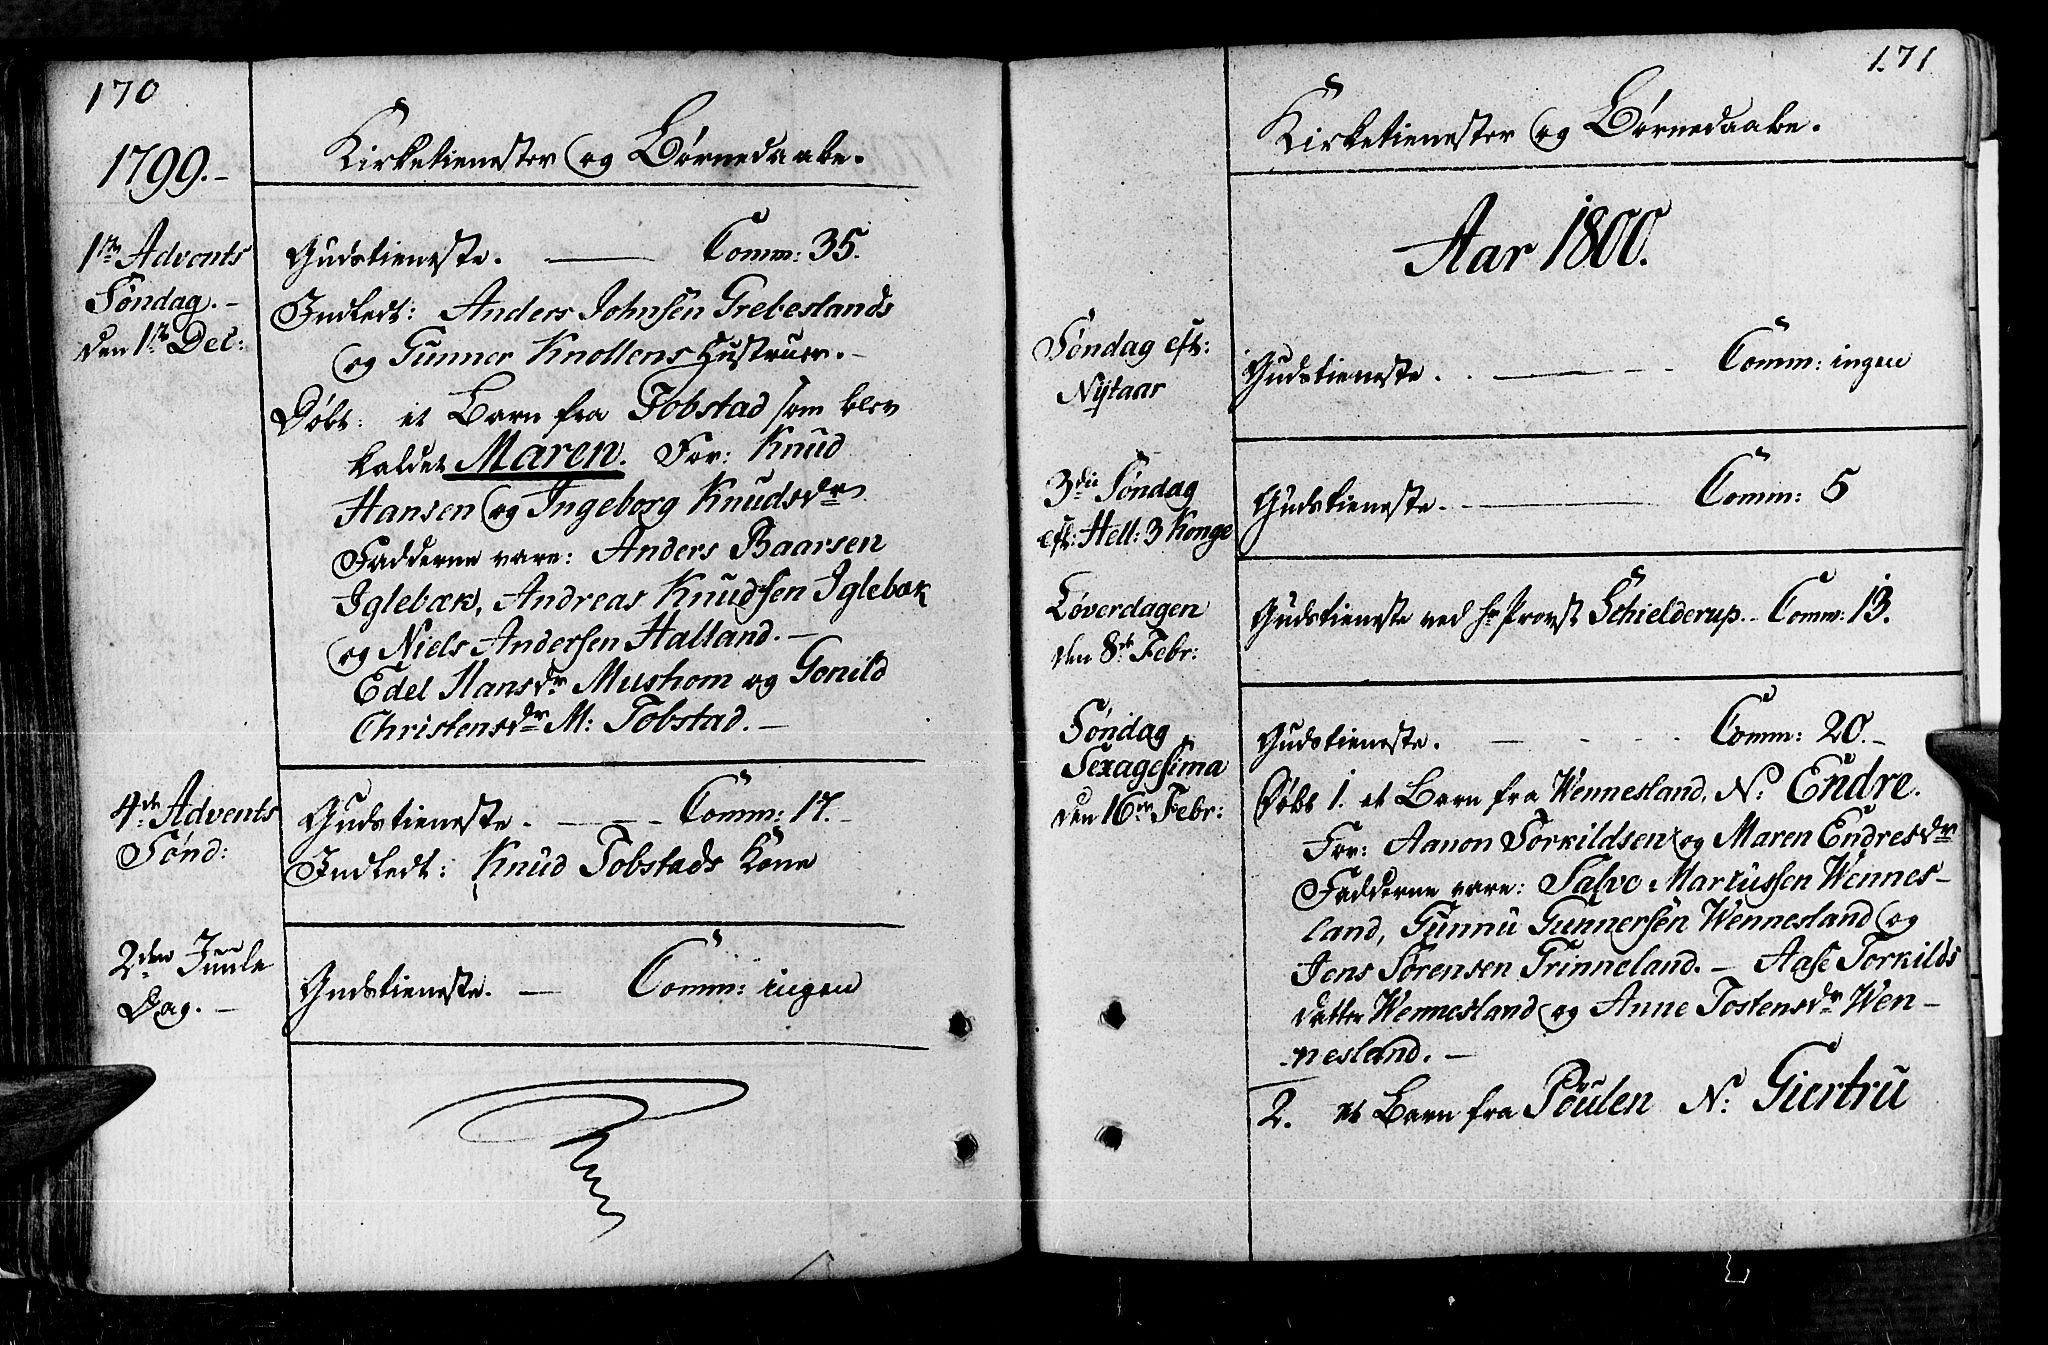 170
1799.-
Kirketienester og Børnedaabe.
1te Advents
Søndag.-
den 1te Dec:
Gudstieneste. — Comm: 35.
Indledt: Anders Johnsen Grebeslands
og Gunner Knollens Hustruer.-
Døbt: et Barn fra Tobstad som blev
kaldet Maren. For: Knud
Hansen og Ingeborg Knudsdr
Fadderne vare: Anders Baarsen
Iglebæk, Andreas Knudsen Iglebæk
og Niels Andersen Halland.-
Edel Hansdr Mushom og Gonild
Christensdr M: Tobstad.-
4de Advents
Sønd:
Gudstieneste. - - - Comm: 17.
Indledt: Knud Tobstads Kone
2den Juule
Dag.-
Gudstieneste. — Comm: ingen
171
Kirketienester og Børnedaabe.
Aar 1800.
Søndag eft:
Nytaar
Gudstieneste. - — - - Comm: ingen
3die Søndag
eft: Hell: 3 Konge
Gudstieneste. - — Comm: 5
Løverdagen
den 8de Febr:
Gudstieneste ved Hr Provst Schielderup.- Comm: 13.
Søndag
Sexagesima
den 16de Febr:
Gudstieneste. - - - - Comm: 20.-
Døbt 1. et Barn fra Wennesland, N: Endre.
For: Aanon Torkildsen og Maren Endresdr
Fadderne vare: Salve Mariussen Wennes-
land, Gunnu Gunnersen Wennesland og
Jens Sørensen Trinneland. - Aase Torkilds
datter Wennesland og Anne Tostensdr Wen-
nesland. -
2. et Barn fra Poulen N: Giertru